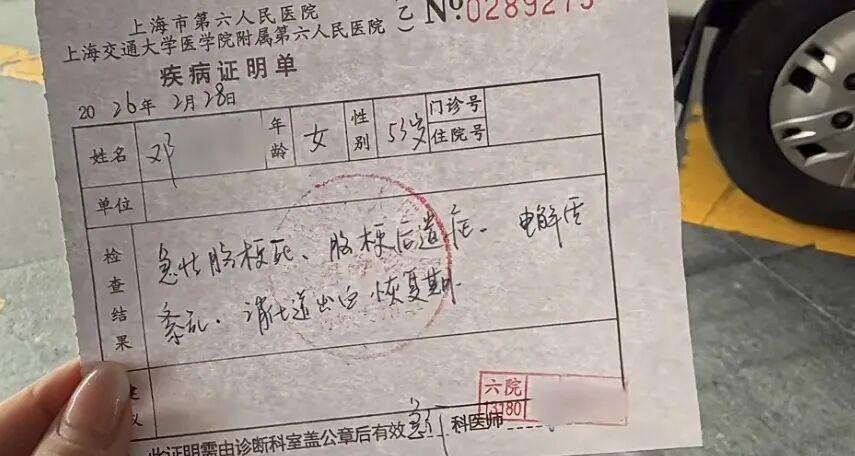 上海市第六人民医院
上海交通大学医学院附属第六人民医院 (乙) No.0289275
疾病证明单
2026年2月28日
姓名 邓 年龄 女 性别 53岁 门诊号 住院号
单位
检查结果 急性脑梗死、脑梗后遗症、电解质
紊乱、消化道出血恢复期
建议
六院
13180
此证明需由诊断科室盖公章后有效 急 科医师